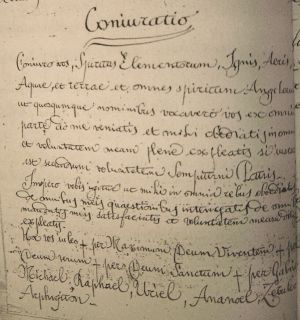 Coniuratio
Coniuro vos, Spiritus Elementorum, Ignis, Aeris,
Aquae, et terrae et omnes spirituum Angelicu
ut quoqumque nominibus vocavero vos ex omni
parte ad me veniatis et mihi obediatis in omni
et voluntatem meam plene expleatis si
est secundum voluntatem Sempiterni Patris.
Impero vobis igitur ut mihi in omnib rebus obediatis
Et omnibus meis quaestionibus interrogatis de omni
meis satisfaciatis et voluntatem meam
expleatis.
Hoc vos iubeo + per Maximum Deum Viventem + per
Deum verum + per Deum Sanctum + per Gabriel
Michael, Raphael, Uriel, Ananoel,